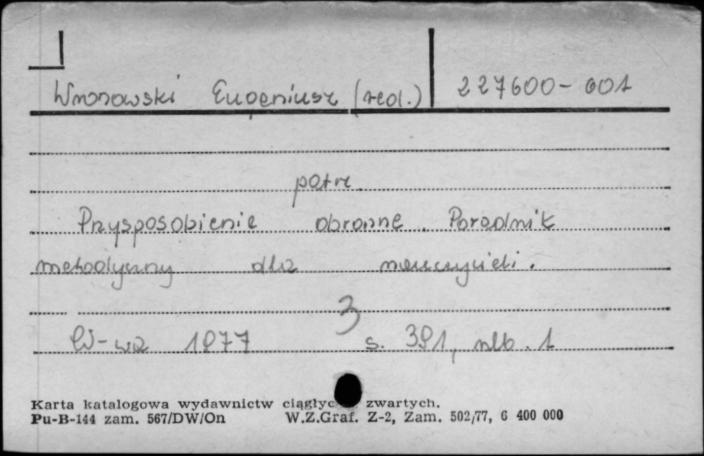 Wnorowski Eugeniusz (red.) 227600-001
patrz
Przysposobienie obronne. Poradnik
metodyczny dla nauczycieli.
3
W-wa 1977 s. 391, nlb. 1
Karta katalogowa wydawnictw ciągłyc zwartych.
Pu-B-144 zam. 567/DW/On W.Z.Graf. Z-2, Zam. 502/77, 6 400 000